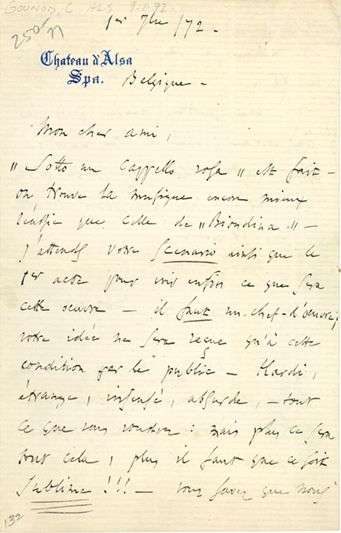 GOUNOD, C. ALS
250/77
1er 7bre /72.
Chateau d'Alsa
Spa.
Belgique -
Mon cher ami,
"Sotto un cappello rosa" est fait -
on trouve la musique encore mieux
réussie que celle de "Biondina" -
j'attends votre scenario ainsi que le
1er acte pour voir enfin ce que sera
cette oeuvre - il faut un chef-d'oeuvre;
votre idée ne sera reçue qu'à cette
condition par le public - Hardi,
étrange, insensé, absurde, - tout
ce que vous voudrez: mais plus ce sera
tout cela, plus il faut que ce soit
sublime!!! - vous savez que nous
132